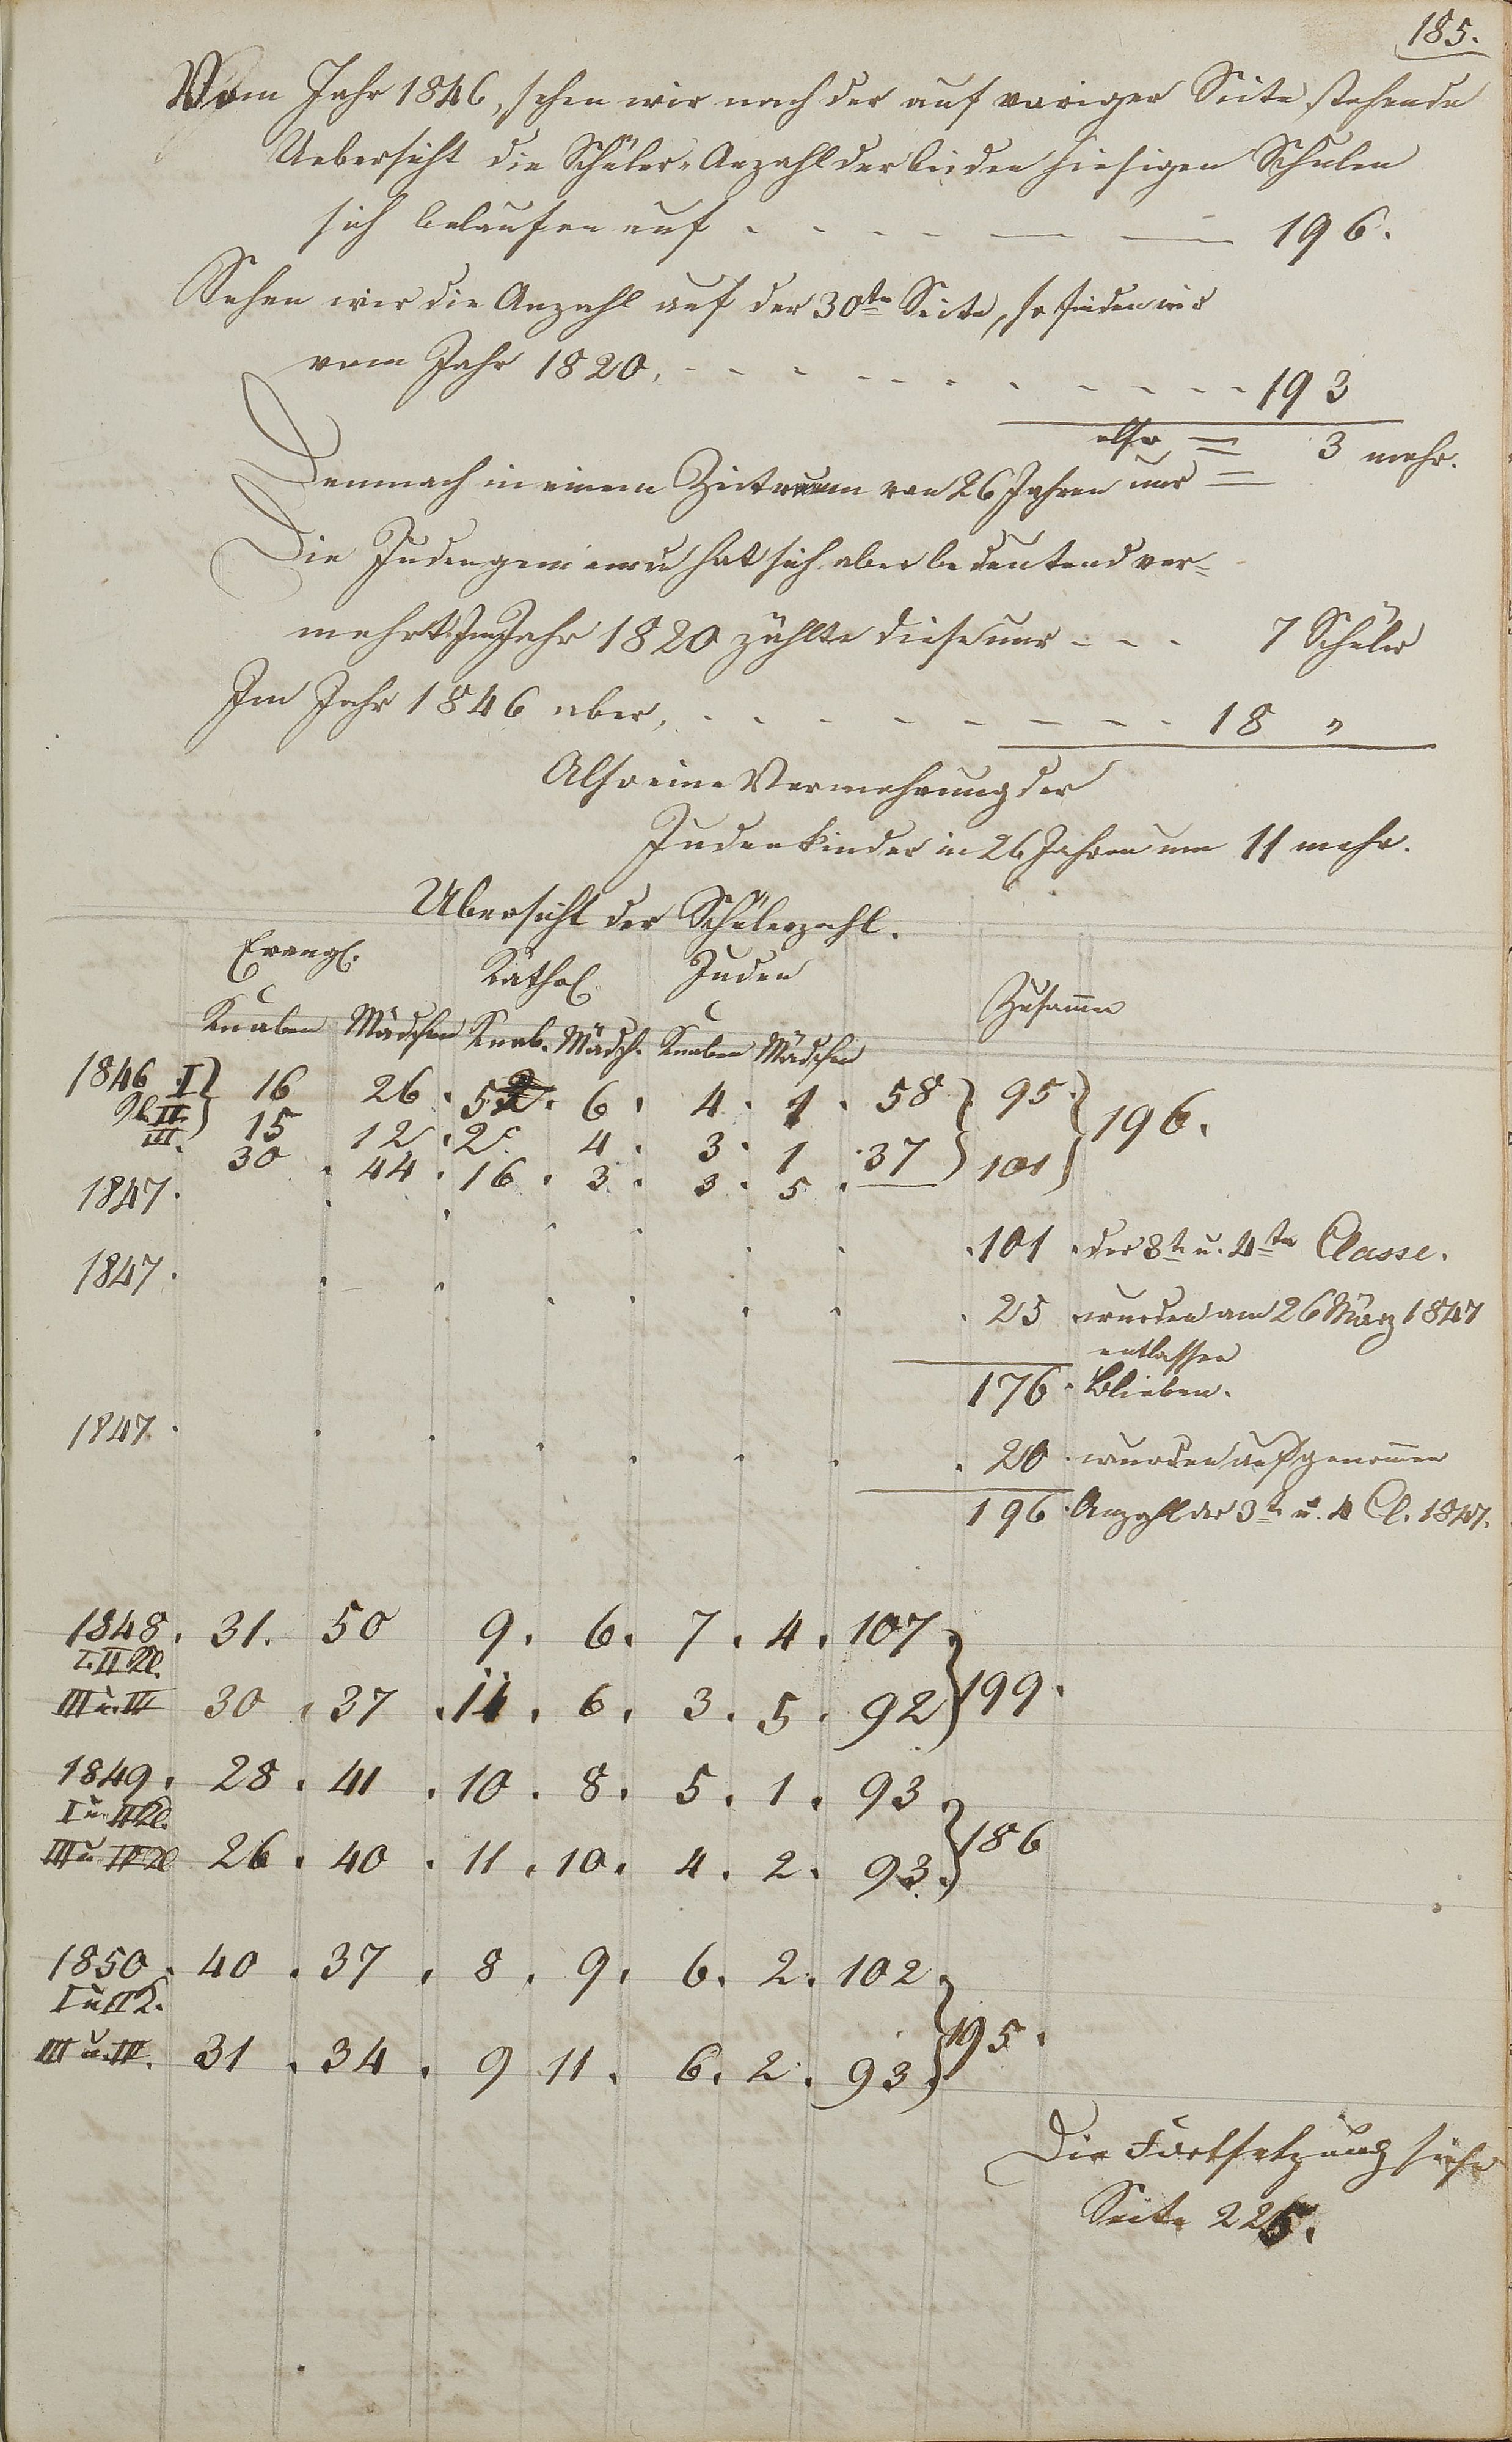 185.
Vom Jahr 1846, sehen wir nach der auf voriger Seite stehende
Uebersicht die Schüler-Anzahl der beiden hiesigen Schulen
sich belaufen auf - - - - — — 196.
Sehen wir die Anzahl auf der 30te Seite, so finden wir
vom Jahr 1820, - - - - - - - - - - 193
also = 3 mehr.
Demnach in einem Zeitraum von 26 Jahren nur =
Die Judengemeinde hat sich aber bedeutend ver-
mehrt. Im Jahr 1820 zählte diese nur - - - 7 Schüler
Im Jahr 1846 aber, - - - - - - - - 18 "
Also eine Vermehrung der
Judenkinder in 26 Jahren um 11 mehr.
Übersicht der Schülerzahl.
Evangl. Kathol Juden Zusamen
Knaben Mädchen Knab. Mädch. Knaben Mädchen
1846 I 16 26 . 5 . 6 . 4 . 1 . 58 } 95 } 196.
Kl. II. 15 12 . 2 . 4 . 3 . 1 . 37
III. 30 . 44 . 16 . 3 . 3 . 5 . 101
1847.
.101 . der 3t. u. 4ten Classe.
1847.
. 25 wurden am 26 März 1847
entlassen
176 . Blieben.
1847. . 20 . wurden aufgenomen
196 . Anzahl der 3t. u. 4 Cl. 1847.
1848. 31. 50 9. 6. 7. 4. 107. } 199.
I. II Kl.
III u. IV 30 . 37 . 11 . 6 . 3 . 5 . 92
1849. 28 . 41 . 10 . 8 . 5 . 1 . 93 . } 186
I u. II Kl.
III u IV Kl 26 . 40 . 11 . 10 . 4 . 2 . 93.
1850. 40 . 37 . 8 . 9 . 6 . 2 . 102. } 195.
I u II K.
III u. IV. 31 . 34 . 9 11 . 6 . 2 . 93.
Die Fortsetzung siehe
Seite 225.